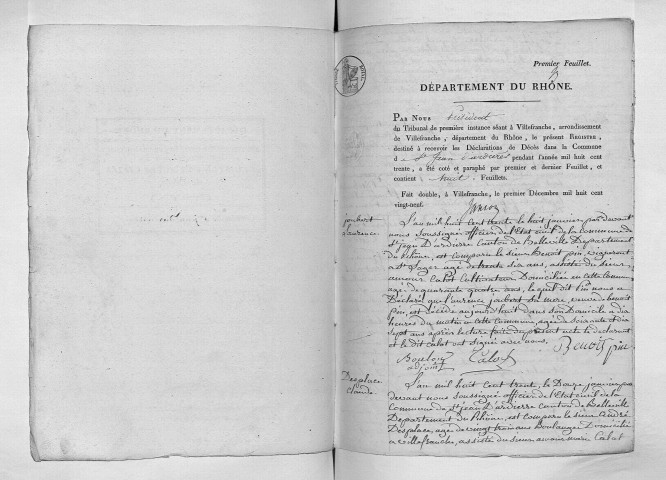 Premier Feuillet.
DÉPARTEMENT DU RHÔNE.
PAR NOUS président
du Tribunal de première instance séant à Villefranche, arrondissement
de Villefranche, département du Rhône, le présent REGISTRE,
destiné à recevoir les Déclarations de Décès dans la Commune
d e St Jean d'ardieres pendant l'année mil huit cent
trente, a été coté et paraphé par premier et dernier Feuillet, et
contient huit Feuillets.
Fait double, à Villefranche, le premier Décembre mil huit cent
vingt-neuf.
joubert
Laurence
L'an mil huit cent trente le huit janvier par devant
nous soussigné officier de l'Etat civil de la commune de
St jean D'ardierre Canton de Belleville Departement
du Rhône, est comparu le sieur Benoit pin, vigneron
a St Lager agé de trente six ans, assisté du sieur
amour Calot Cultivateur Domicilié en cette Commune
agé de quarante quatre ans, lequel pin nous a
Déclaré que Laurence joubert sa mere, veuve de benoit
pin, est décédé aujourd'huit dans son Domicile a dix
heures du matin en cette Commune, agée de soixante dix
sept ans après lecture faite du present acte le declarant
et le dit calot ont signé avec nous.
Benoit pin
Calot
adjoint
Desplace
claude
L'an mil huit cent trente, le Douze janvier par
devant nous soussigné officier de l'Etat civil de la
Commune de St jean D'ardierre canton de Belleville
Departement Du Rhône, est comparu le sieur André
Desplace, agé de vingt trois ans Boulanger Domicilié
a villefranche, assisté du sieur amour Calot